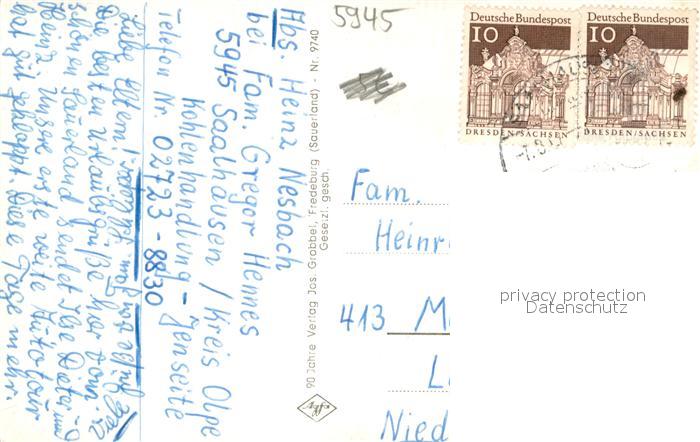 5945
Deutsche Bundespost
10
DRESDEN/SACHSEN
Deutsche Bundespost
10
DRESDEN/SACHSEN
Abs. Heinz Nesbach
bei Fam. Gregor Hennes
5945 Saalhausen / Kreis Olpe
Kohlenhandlung -
Telefon Nr. 02723-8830
Liebe Eltern!
Die besten Urlaubsgrüße hier vom
schönen Sauerland sendet Ilse Dieter und
Heinz. Unsere erste weite Autotour
hat gut geklappt. Diese Tage mehr.
90 Jahre Verlag Jos. Grobbel, Fredeburg (Sauerland) - Nr. 9740
Gesetzl. gesch.
Fam.
Heinr
413 M
L
Nied
privacy protection
Datenschutz